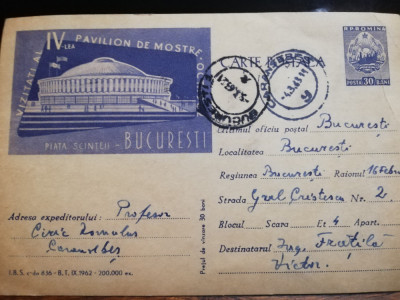 VIZITAȚI AL IV-LEA PAVILION DE MOSTRE
PIATA SCÎNTEII - BUCUREȘTI
CARTE POȘTALĂ
R.P.ROMINA
POSTA 30 BANI
BUCUREȘTI
CARANSEBEȘ
Oficiul oficiu poștal București
Localitatea București
Regiunea București Raionul 16 Febru
Strada Gral Cristescu Nr 2
Blocul Scara Et 4 Apart.
Destinatarul Frățilă
Victor.
Adresa expeditorului: Profesor
Civic Romulus
Caransebeș
Prețul de vînzare 30 bani
I.B.S. c-da 836 - B.T. IX.1962 - 200.000 ex.